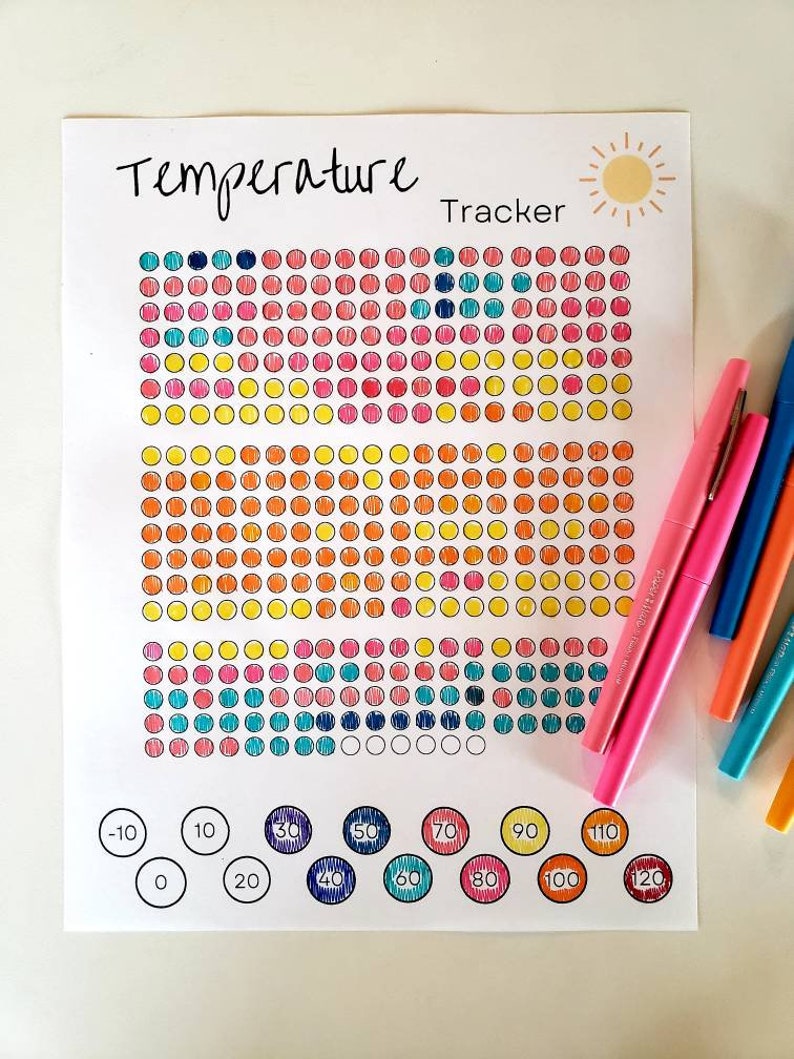 Temperature
Tracker
-10 10 30 50 70 90 110
0 20 40 60 80 100 120
Paper Mate